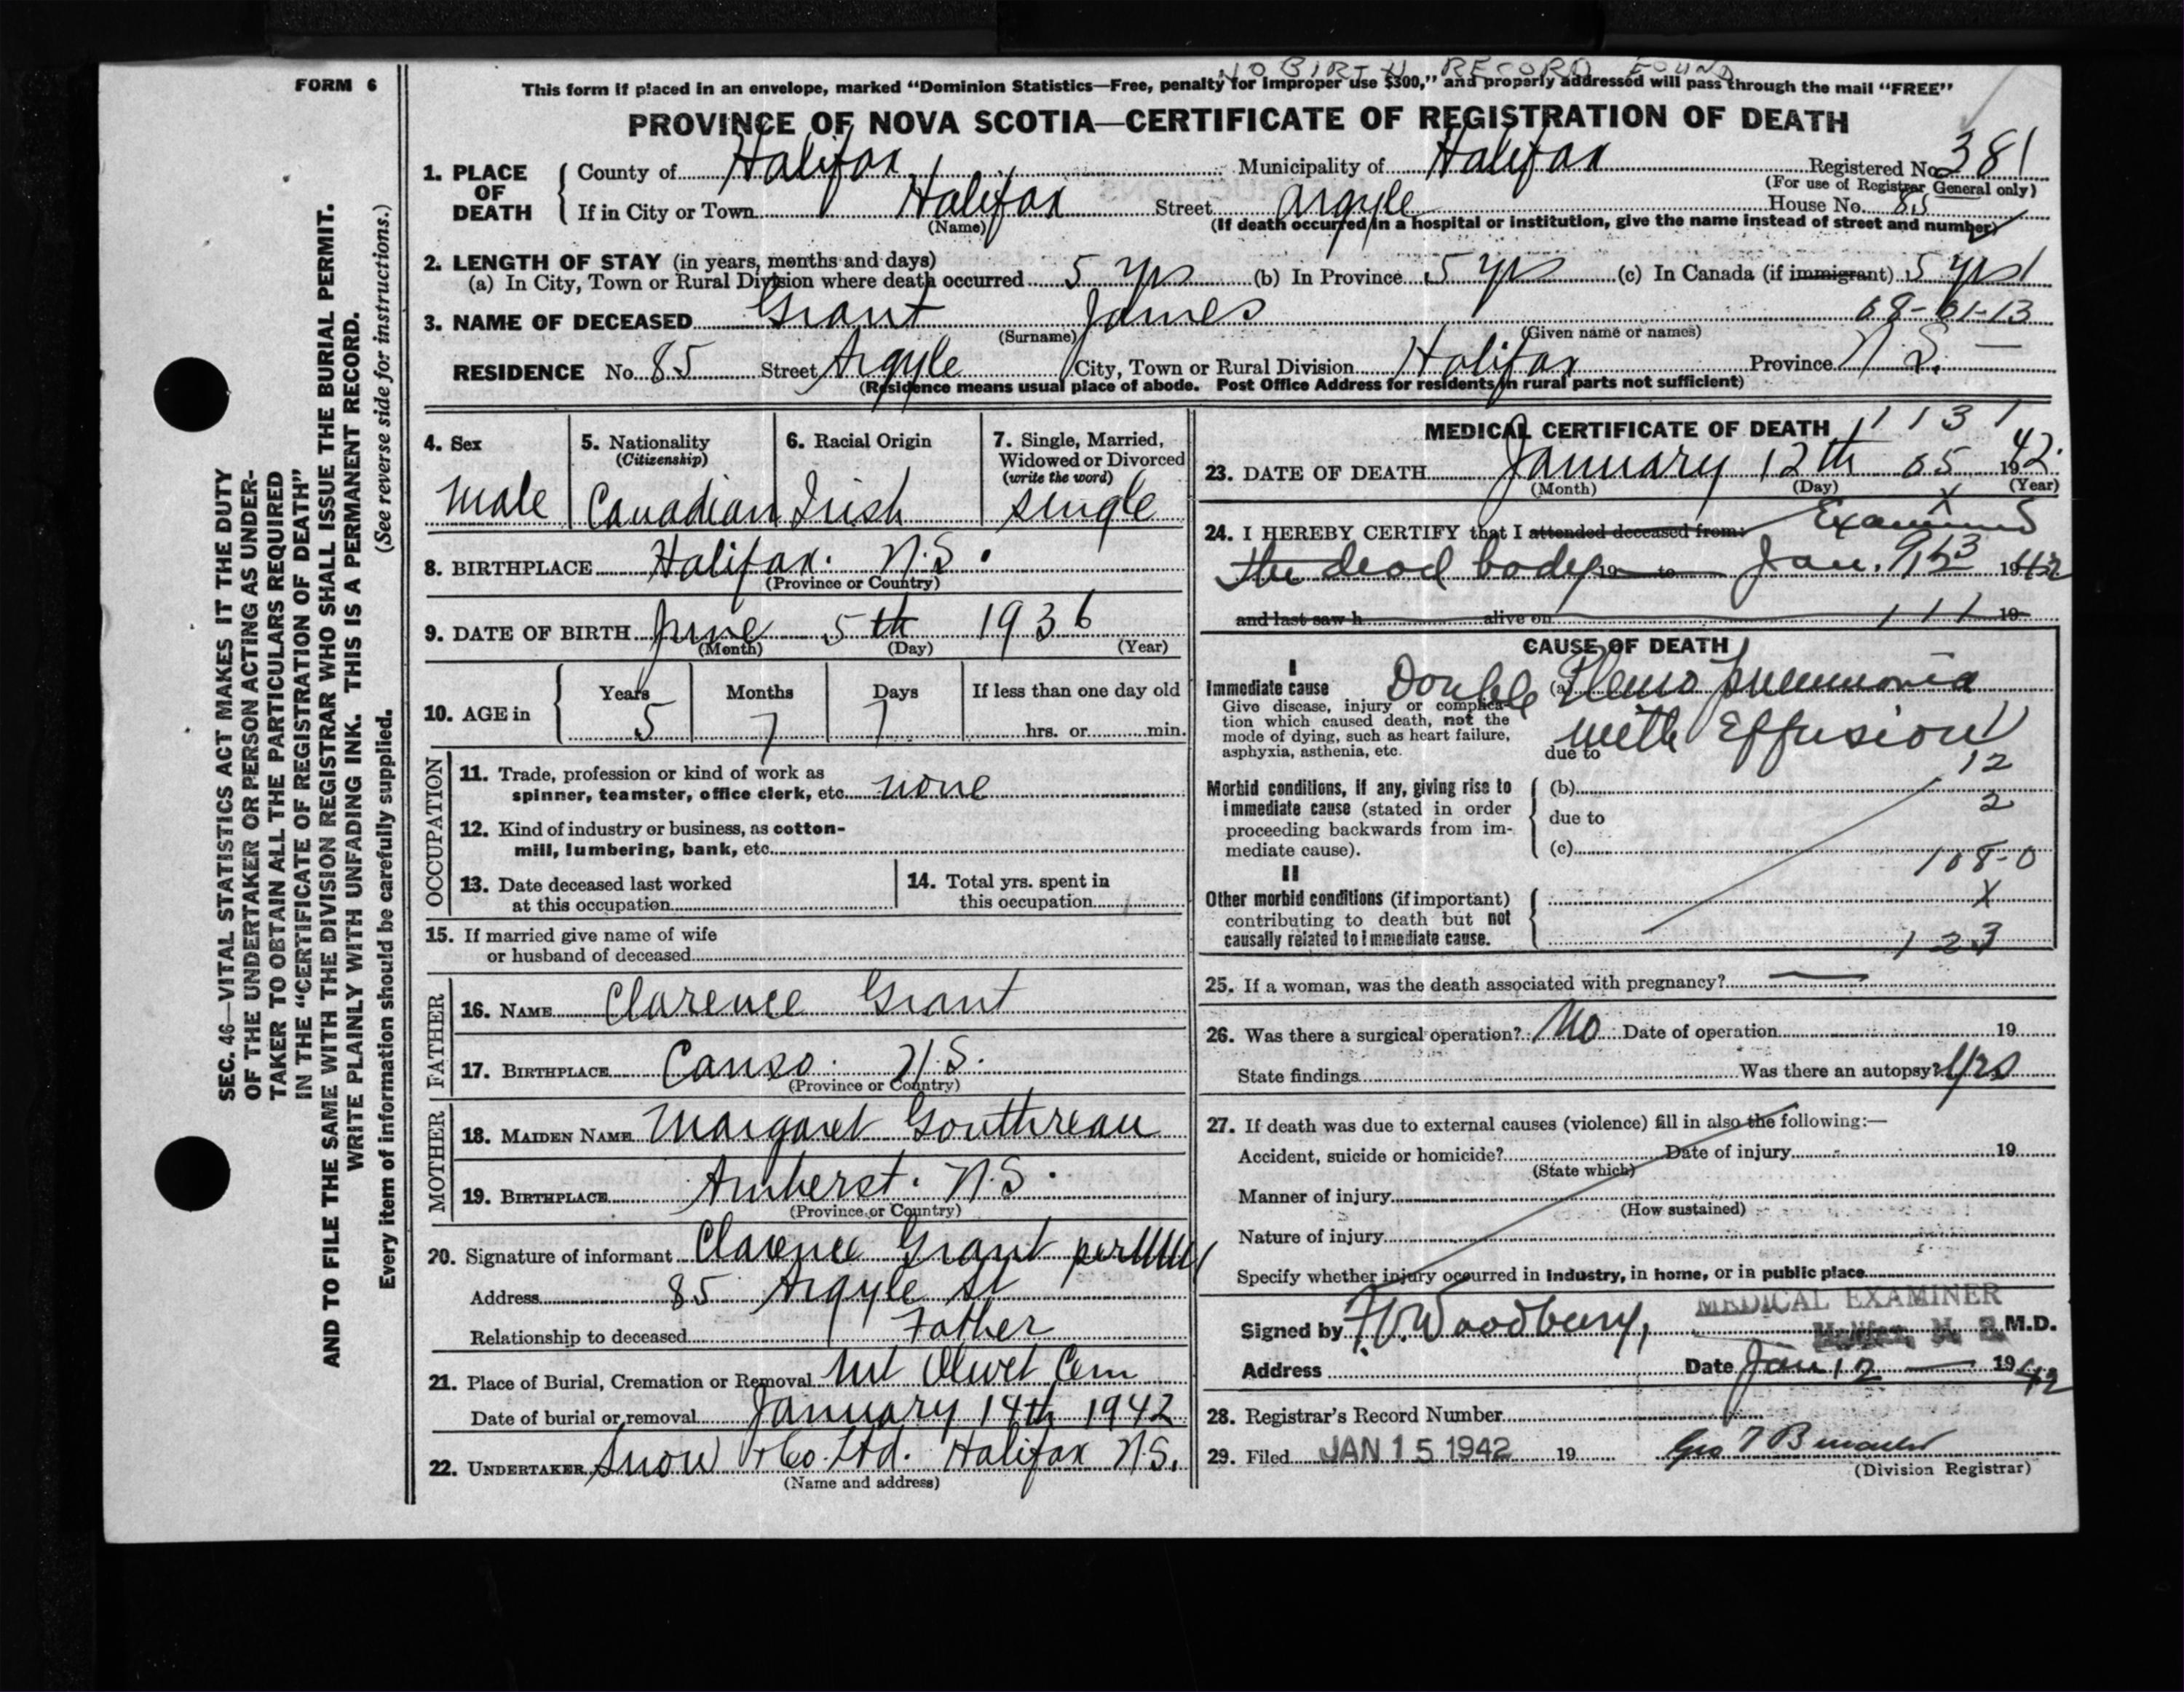 NO BIRTH RECORD FOUND
FORM 6
This form if placed in an envelope, marked “Dominion Statistics—Free, penalty for improper use $300,” and properly addressed will pass through the mail “FREE”
PROVINCE OF NOVA SCOTIA—CERTIFICATE OF REGISTRATION OF DEATH
1. PLACE OF DEATH County of Halifax Municipality of Halifax Registered No. 381
(For use of Registrar General only)
If in City or Town Halifax Street Argyle House No. 85
(Name) (If death occurred in a hospital or institution, give the name instead of street and number)
2. LENGTH OF STAY (in years, months and days)
(a) In City, Town or Rural Division where death occurred 5 yrs (b) In Province 5 yrs (c) In Canada (if immigrant) 5 yrs
3. NAME OF DECEASED Grant James 68-01-13
(Surname) (Given name or names)
RESIDENCE No. 85 Street Argyle City, Town or Rural Division Halifax Province N.S.
(Residence means usual place of abode. Post Office Address for residents in rural parts not sufficient)
4. Sex 5. Nationality 6. Racial Origin 7. Single, Married,
(Citizenship) Widowed or Divorced
(write the word)
Male Canadian Irish single
8. BIRTHPLACE Halifax. N.S.
(Province or Country)
9. DATE OF BIRTH June 5th 1936
(Month) (Day) (Year)
10. AGE in Years Months Days If less than one day old
5 7 7 hrs. or min.
OCCUPATION
11. Trade, profession or kind of work as
spinner, teamster, office clerk, etc. none
12. Kind of industry or business, as cotton-
mill, lumbering, bank, etc.
13. Date deceased last worked 14. Total yrs. spent in
at this occupation this occupation
15. If married give name of wife
or husband of deceased
FATHER
16. NAME Clarence Grant
17. BIRTHPLACE Canso. N.S.
(Province or Country)
MOTHER
18. MAIDEN NAME Margaret Gouthreau
19. BIRTHPLACE Amherst. N.S.
(Province or Country)
20. Signature of informant Clarence Grant per
Address 85 Argyle St
Relationship to deceased Father
21. Place of Burial, Cremation or Removal Mt Olivet Cem
Date of burial or removal January 14th 1942
22. UNDERTAKER Snow & Co. Ltd. Halifax N.S.
(Name and address)
MEDICAL CERTIFICATE OF DEATH 1131
23. DATE OF DEATH January 12th 05 1942.
(Month) (Day) (Year)
X
24. I HEREBY CERTIFY that I attended deceased from: Examined
the dead body 19 to Jan. 1942
and last saw h alive on 111 19
CAUSE OF DEATH
I
Immediate cause Double (a) Pleuro pneumonia
Give disease, injury or complica-
tion which caused death, not the
mode of dying, such as heart failure, with Effusion
asphyxia, asthenia, etc. due to
12
Morbid conditions, if any, giving rise to (b)
immediate cause (stated in order 2
proceeding backwards from im- due to
mediate cause). (c)
108-0
II
Other morbid conditions (if important) X
contributing to death but not
causally related to immediate cause. 123
25. If a woman, was the death associated with pregnancy?
26. Was there a surgical operation? No Date of operation 19
State findings Was there an autopsy? Yes
27. If death was due to external causes (violence) fill in also the following:—
Accident, suicide or homicide? Date of injury 19
(State which)
Manner of injury
(How sustained)
Nature of injury
Specify whether injury occurred in industry, in home, or in public place
MEDICAL EXAMINER
Signed by Woodbury, Halifax, N. S. M.D.
Address Date Jan 12 1942
28. Registrar's Record Number
29. Filed JAN 15 1942 19
(Division Registrar)
SEC. 46—VITAL STATISTICS ACT MAKES IT THE DUTY
OF THE UNDERTAKER OR PERSON ACTING AS UNDER-
TAKER TO OBTAIN ALL THE PARTICULARS REQUIRED
IN THE “CERTIFICATE OF REGISTRATION OF DEATH”
AND TO FILE THE SAME WITH THE DIVISION REGISTRAR WHO SHALL ISSUE THE BURIAL PERMIT.
WRITE PLAINLY WITH UNFADING INK. THIS IS A PERMANENT RECORD.
Every item of information should be carefully supplied. (See reverse side for instructions.)